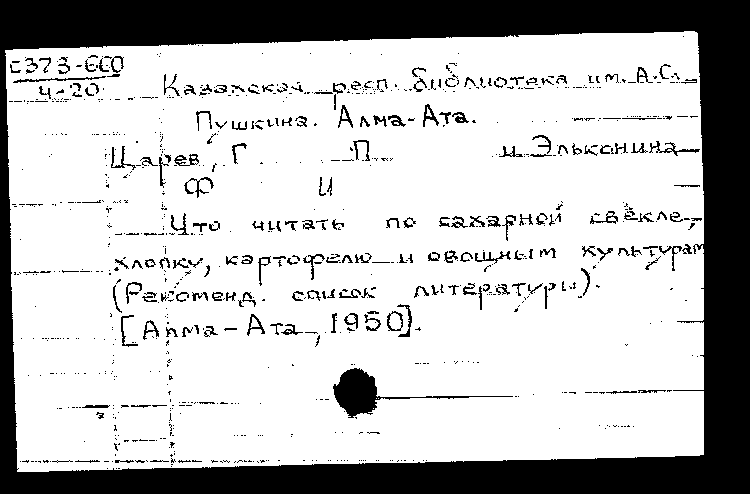 С373-660
4-20
Казахская респ. библиотека им. А.С.
Пушкина. Алма-Ата.
Царев, Г П и Эльконина
Ф И
Что читать по сахарной свёкле,
хлопку, картофелю и овощным культурам
(Рекоменд. список литературы).
[Алма-Ата, 1950].